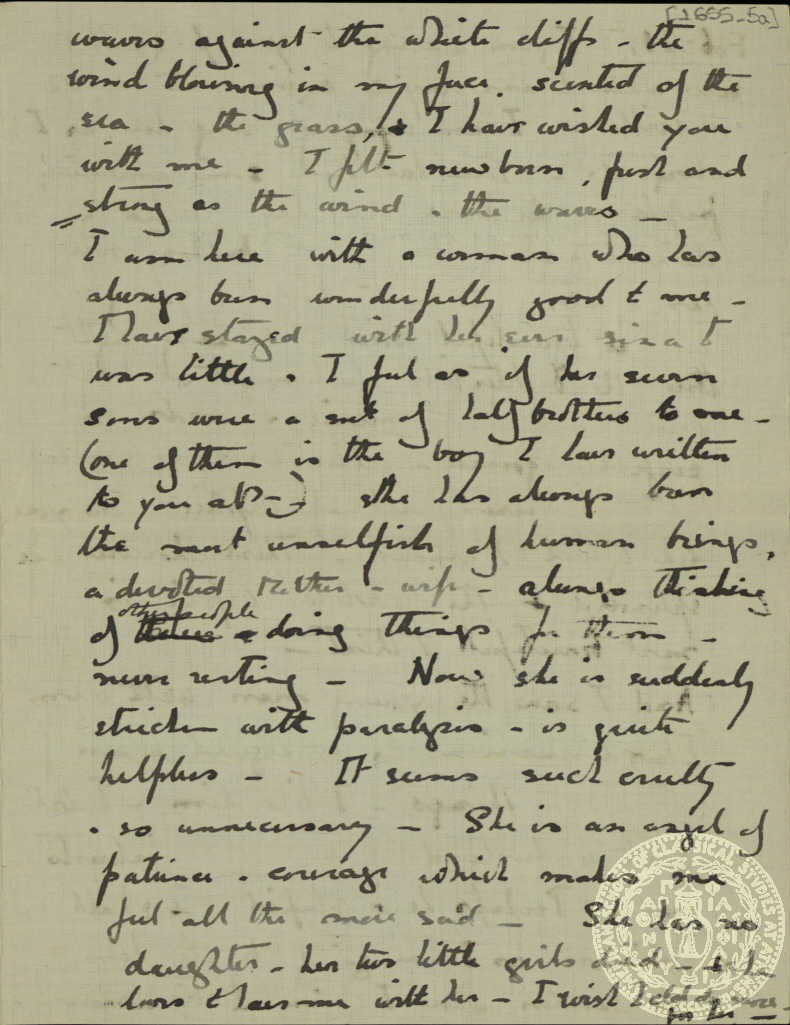 [1655-5a]
waves against the white cliffs - the
wind blowing in my face, scented of the
sea - the grass, & I have wished you
with me - I felt newborn, fresh and
strong as the wind - the waves -
I am here with a woman who has
always been wonderfully good to me -
I have stayed with her ever since I
was little - I feel as if her seven
sons were a sort of half brothers to me -
(one of them is the boy I have written
to you abt -) She has always been
the most unselfish of human beings,
a devoted Mother - wife - always thinking
of other people & doing things for them -
never resting - Now she is suddenly
stricken with paralysis - is quite
helpless - It seems such cruelty
- so unnecessary - She is an angel of
patience - courage which makes me
feel all the more sad - She has no
daughter - her two little girls died - & she
loves to have me with her - I wish I could do more
for her -
AMERICAN SCHOOL OF CLASSICAL STUDIES AT ATHENS